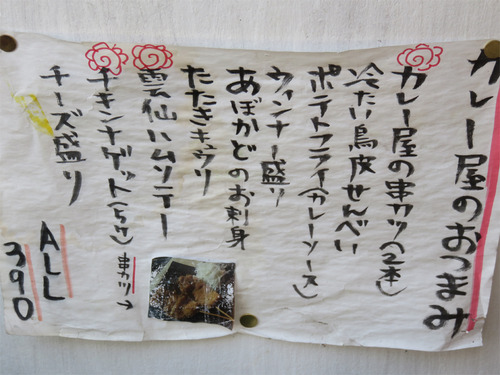 カレー屋のおつまみ
カレー屋の串カツ(2本)
冷たい鳥皮せんべい
ポテトフライ(カレーソース)
ウィンナー盛り
あぼかどのお刺身
たたきキュウリ
雲仙ハムソテー
チキンナゲット(5ケ)
チーズ盛り
串カツ→
ALL
390